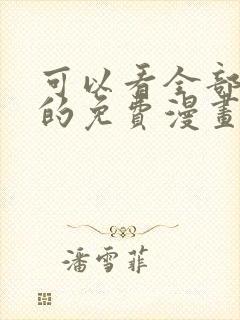 可以看全部
的免費漫畫
潘雪菲